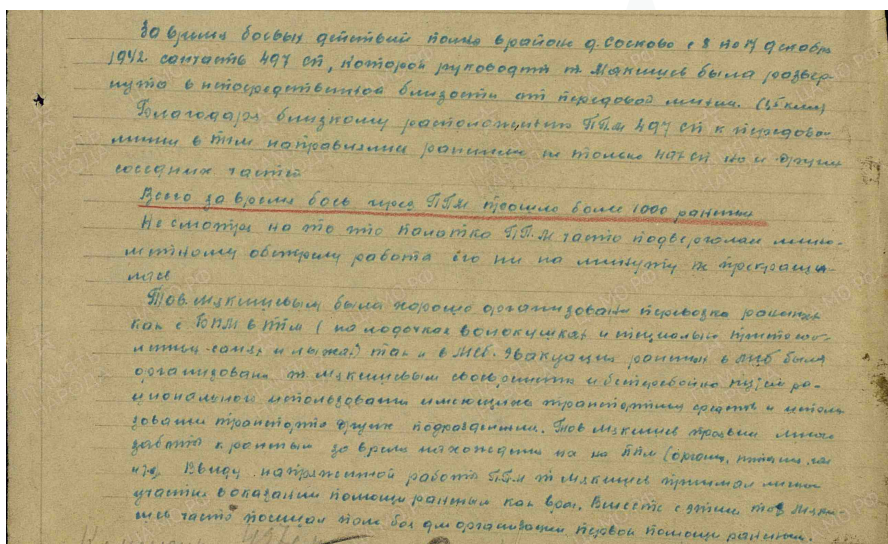 За время боевых действий полка в районе д. Сосково с 8 по 17 декабря
1942. санчасть 497 сп, которой руководит т. Мякишев была развер-
нута в непосредственной близости от передовой линии.
Благодаря близкому расположению ППМ 497 сп к передовой
линии в ППМ направлялись раненые не только 497 сп но и других
соседних частей
Всего за время боев через ППМ прошло более 1000 раненых
Не смотря на то что палатка П.П.М часто подвергалась мино-
метному обстрелу работа его ни на минуту не прекраща-
лась
Тов. Мякишевым была хорошо организована перевозка раненых
как с БПМ в ППМ (на лодочках волокушках и специально приспособ-
ленных санях и лыжах) так и в МСБ. Эвакуация раненых в МСБ была
организована т. Мякишевым своевременно и бесперебойно путем ра-
ционального использования имеющихся транспортных средств и исполь
зования транспорта других подразделений. Тов Мякишев проявил много
заботы к раненым за время нахождения их на ППМ (обогрев, питание, чай
и т.д. Ввиду напряженной работы П.П.М т Мякишев принимал личное
участие в оказании помощи раненым как врач. Вместе с этим тов Мяки
шев часто посещал поле боя для организации первой помощи раненым.